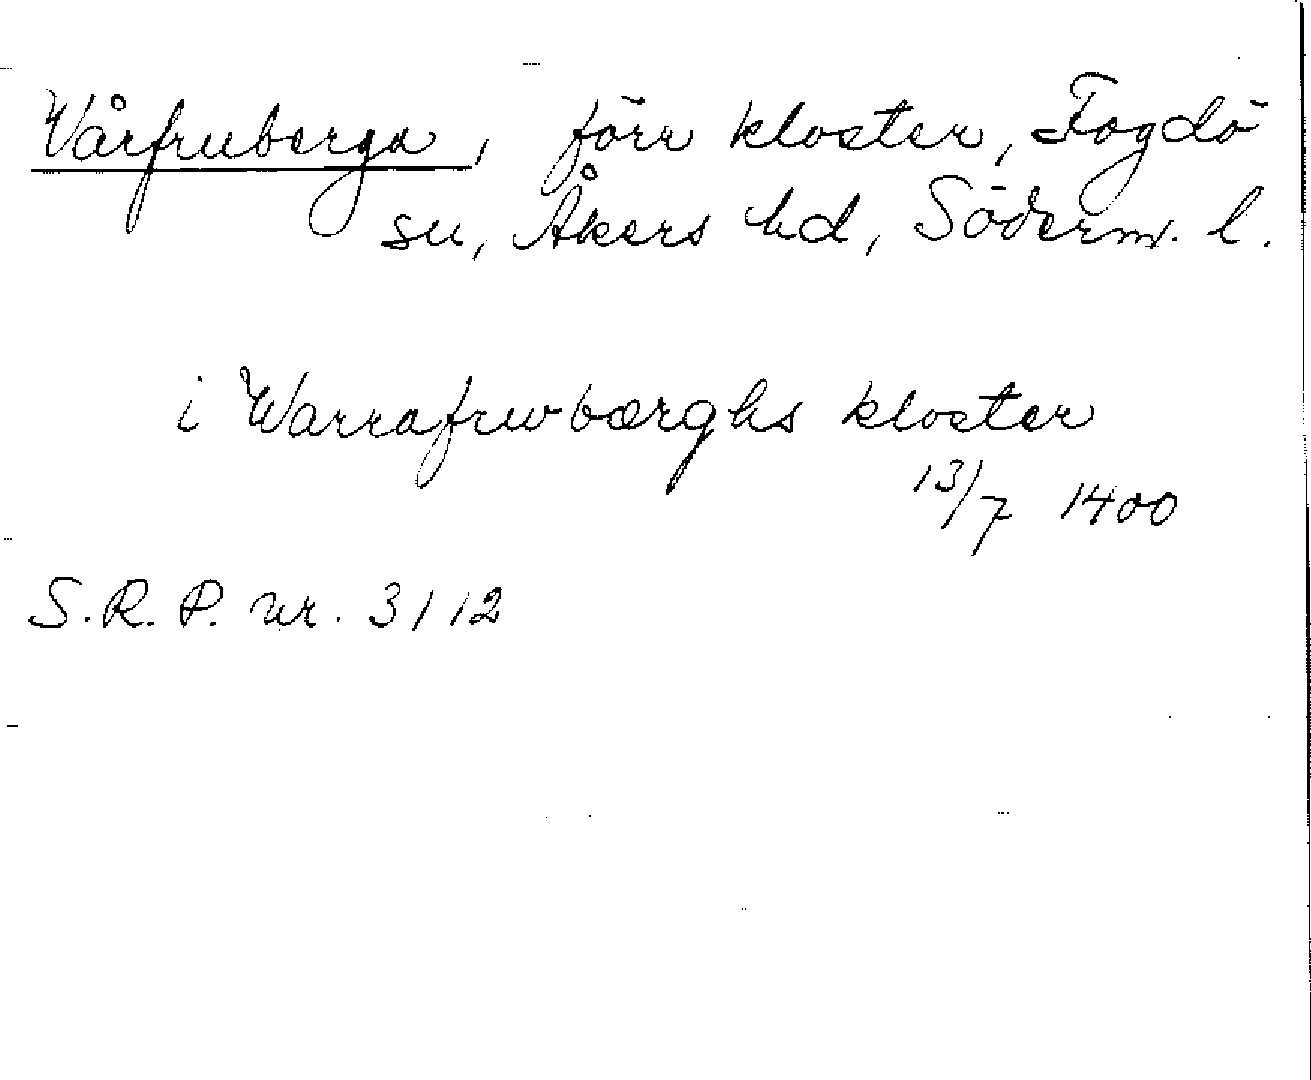 Vårfruberga, förr kloster, Fogdö
sn, Åkers hd, Söderm. l.
i Warrafrwbærghs kloster
13/7 1400
S.R.P. nr. 3112